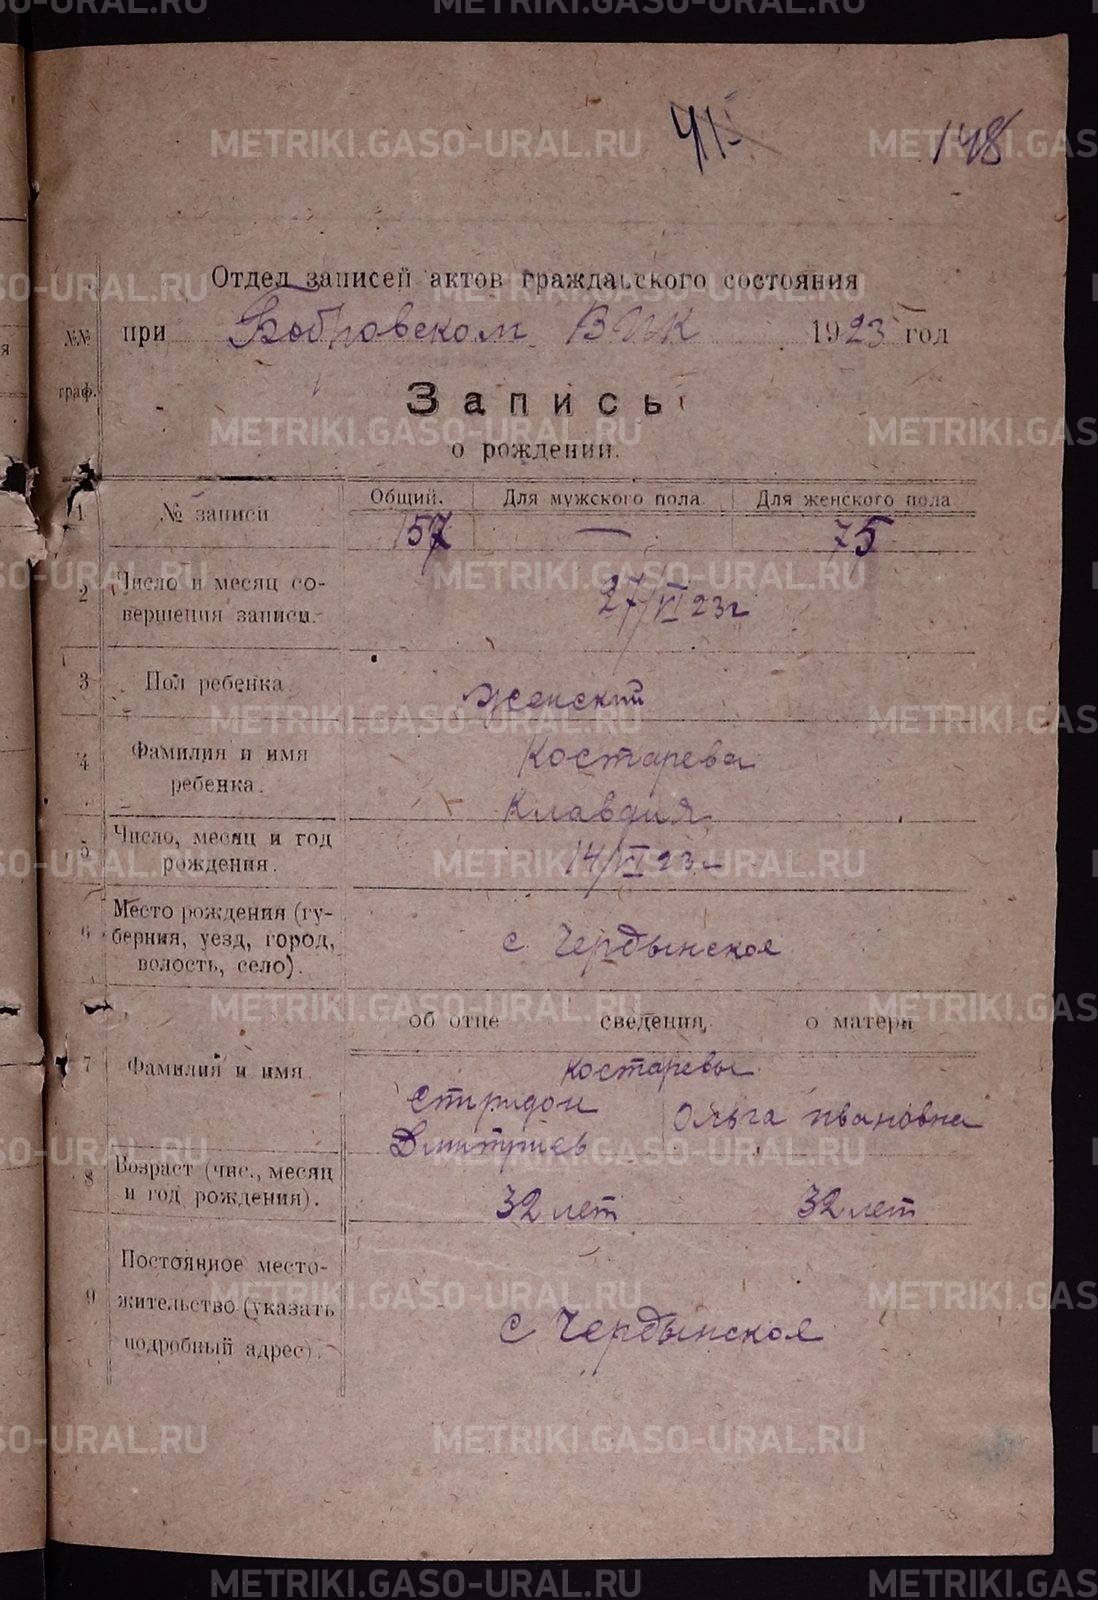 148
Отдел записей актов гражданского состояния
при Бобровском ВИК 1923 год
№№ граф.
Запись
о рождении.
Общий. Для мужского пола Для женского пола
1 № записи 157 — 75
2 Число и месяц со-
вершения записи. 27/VI 23 г
3 Пол ребенка женский
4 Фамилия и имя Костарева
ребенка. Клавдия
5 Число, месяц и год
рождения. 14/VI 23 г
6 Место рождения (гу-
берния, уезд, город, с Чердынское
волость, село).
об отце сведения о матери
7 Фамилия и имя Костаревы
Спиридон Ольга Ивановна
Дмитриев
8 Возраст (чис., месяц
и год рождения). 32 лет 32 лет
Постоянное место-
9 жительство (указать с Чердынское
подробный адрес).
METRIKI.GASO-URAL.RU